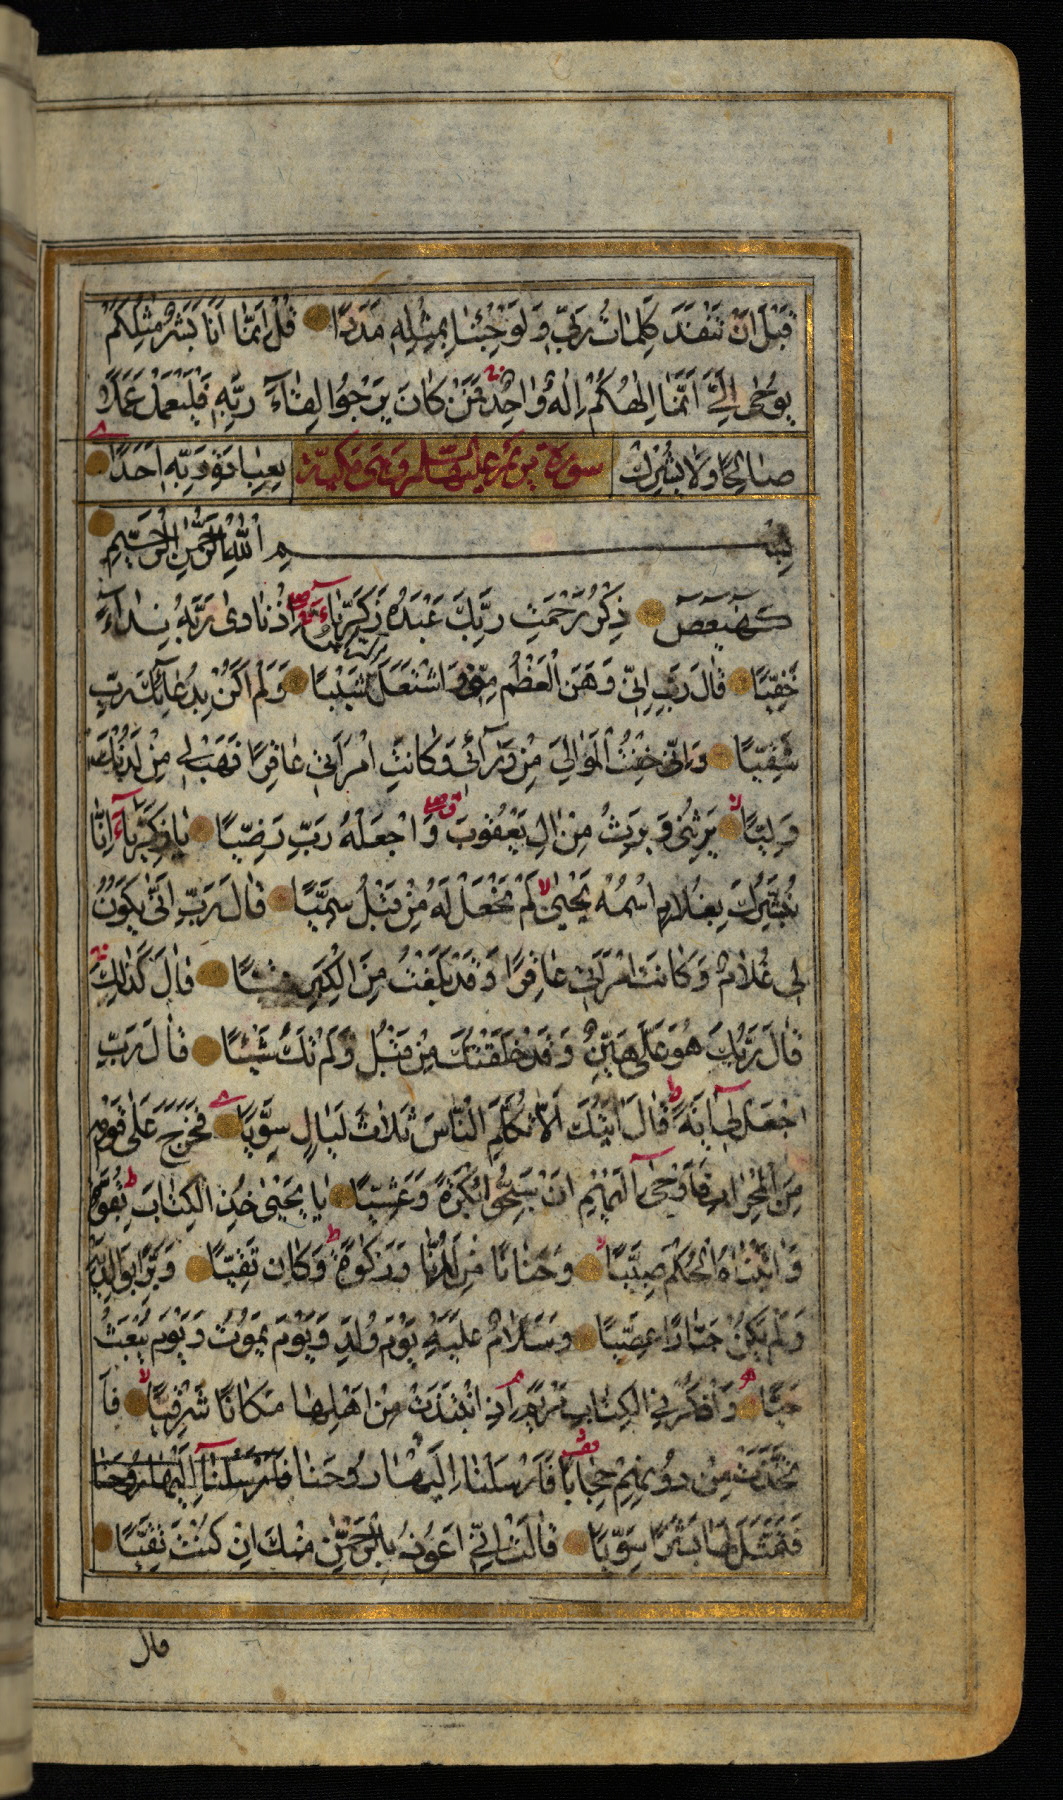 قَبْلَ اَنْ تَنْفَدَ كَلِمَاتُ رَبّي وَلَوْ جِئْنَا بِمِثْلِهِ مَدَدًا قُلْ اِنَّمَا اَنَا بَشَرٌ مِثْلُكُمْ
يُوحٰى اِلَيَّ اَنَّمَا اِلٰهُكُمْ اِلٰهٌ وَاحِدٌ فَمَنْ كَانَ يَرْجُوا لِقَاءَ رَبِّهِ فَلْيَعْمَلْ عَمَلًا
صَالِحًا وَلَا يُشْرِكْ سورة مريم عليها السلام وهى مكية بِعِبَادَةِ رَبِّهِ اَحَدًا
بِسْمِ اللهِ الرَّحْمٰنِ الرَّحِيمِ
كهيعص ذِكْرُ رَحْمَتِ رَبِّكَ عَبْدَهُ زَكَرِيَّاءَ اِذْ نَادٰى رَبَّهُ نِدَاءً
خَفِيًّا قَالَ رَبِّ اِنّي وَهَنَ الْعَظْمُ مِنّي وَاشْتَعَلَ الرأس شَيْبًا وَلَمْ اَكُنْ بِدُعَائِكَ رَبِّ
شَقِيًّا وَاِنّي خِفْتُ الْمَوَالِيَ مِنْ وَرَائي وَكَانَتِ امْرَاَتي عَاقِرًا فَهَبْ لي مِنْ لَدُنْكَ
وَلِيًّا يَرِثُني وَيَرِثُ مِنْ اٰلِ يَعْقُوبَ وَاجْعَلْهُ رَبِّ رَضِيًّا يَا زَكَرِيَّاءُ اِنَّا
نُبَشِّرُكَ بِغُلَامٍ اسْمُهُ يَحْيٰى لَمْ نَجْعَلْ لَهُ مِنْ قَبْلُ سَمِيًّا قَالَ رَبِّ اَنّٰى يَكُونُ
لي غُلَامٌ وَكَانَتِ امْرَاَتي عَاقِرًا وَقَدْ بَلَغْتُ مِنَ الْكِبَرِ عتيًّا قَالَ كَذٰلِكَ
قَالَ رَبُّكَ هُوَ عَلَيَّ هَيِّنٌ وَقَدْ خَلَقْتُكَ مِنْ قَبْلُ وَلَمْ تَكُ شَيْئًا قَالَ رَبِّ
اجْعَلْ لي اٰيَةً قَالَ اٰيَتُكَ اَلَّا تُكَلِّمَ النَّاسَ ثَلَاثَ لَيَالٍ سَوِيًّا فَخَرَجَ عَلٰى قَوْمِهِ
مِنَ الْمِحْرَابِ فَاَوْحٰى اِلَيْهِمْ اَنْ سَبِّحُوا بُكْرَةً وَعَشِيًّا يَا يَحْيٰى خُذِ الْكِتَابَ بِقُوَّةٍ
وَاٰتَيْنَاهُ الْحُكْمَ صَبِيًّا وَحَنَانًا مِنْ لَدُنَّا وَزَكٰوةً وَكَانَ تَقِيًّا وَبَرًّا بِوَالِدَيْهِ
وَلَمْ يَكُنْ جَبَّارًا عَصِيًّا وَسَلَامٌ عَلَيْهِ يَوْمَ وُلِدَ وَيَوْمَ يَمُوتُ وَيَوْمَ يُبْعَثُ
حَيًّا وَاذْكُرْ فِي الْكِتَابِ مَرْيَمَ اِذِ انْتَبَذَتْ مِنْ اَهْلِهَا مَكَانًا شَرْقِيًّا فَا
تَّخَذَتْ مِنْ دُونِهِمْ حِجَابًا فَاَرْسَلْنَا اِلَيْهَا رُوحَنَا فَاَرْسَلْنَا اِلَيْهَا رُوحَنَا
فَتَمَثَّلَ لَهَا بَشَرًا سَوِيًّا قَالَتْ اِنّي اَعُوذُ بِالرَّحْمٰنِ مِنْكَ اِنْ كُنْتَ تَقِيًّا
قال